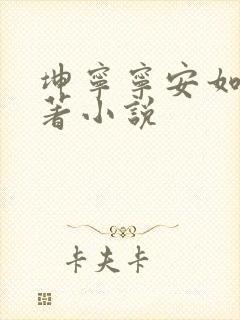 坤寧寧安如
著小説
卡夫卡